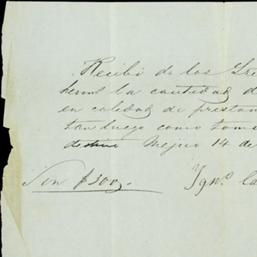 Recibí de los Sre
herm.s la cantidad d
en calidad de prestam
tan luego como tom
destino Mejico 14 de
Son $300,, Ygn.o Ca